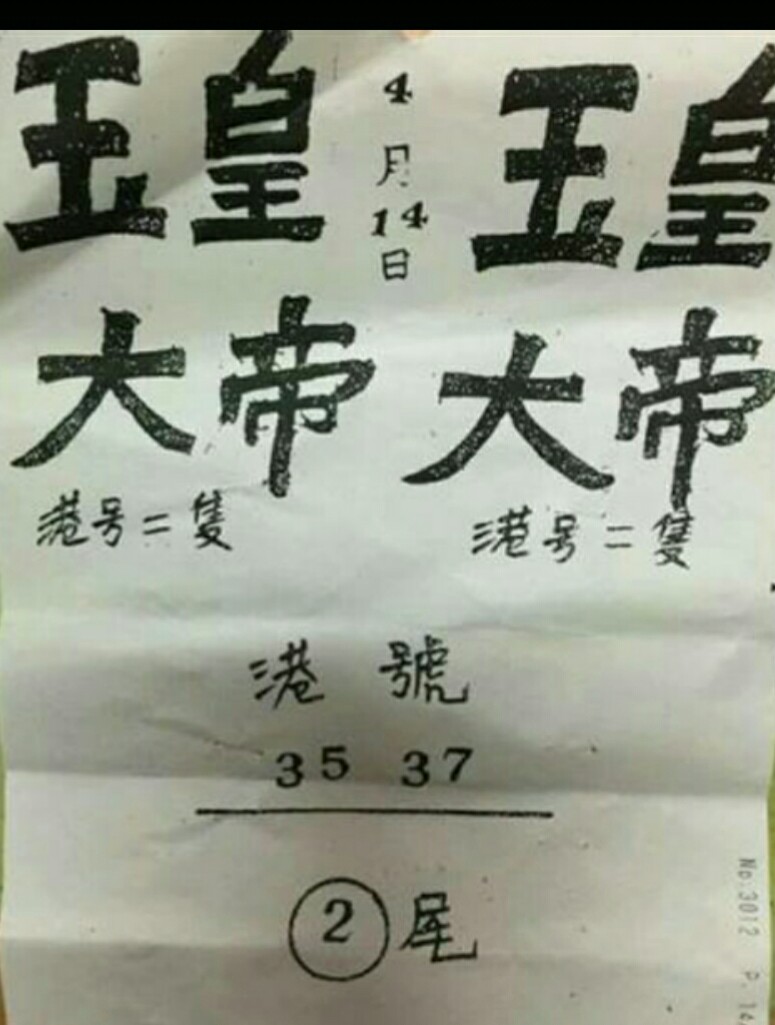 玉皇 4月14日 玉皇
大帝 大帝
港号二隻 港号二隻
港號
35 37
2尾
No.3012 P.14